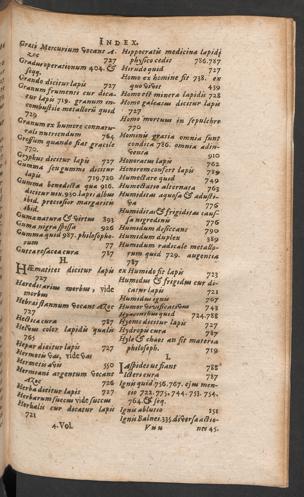 INDEX.
Graci Mercurium vocant A-
zoc 727
Graduum operationum 404. &
seqq.
Grando dicitur lapis 727
Granum frumenti cur dica-
tur lapis 719. granum in-
combustile metallorū quid
729
Granum ex humore connatu-
rali nutriendum 764
Grossum quando fiat gracile
770.
Gryphus dicitur lapis 727
Gumma seu gummus dicitur
lapis 719.720
Gumma benedicta qua 926.
dicitur
ibid. preciosior margaritis
ibid.
Guma natura & virtus 393
Guma nigra pista 926
Gumma quid 987. philosopho-
rum 77
Gutta rosacea cura 787
H.
Hæmatites dicitur lapis
727
Haredisarius morbus, vide
morbus
Hebrai stannum vocant Azoc
727
Hectica cura 787
Helseus color lapidis qualis
765
Hepar dicitur lapis 727
Hermetis Gas, vide vas
Hermetis avis 550
Hermiani argentum vocant
Azoc 726
Herba dicitur lapis 727
Herbarum succus vide succus
Herbalis cur dicatur lapis
721
4. Vol.
Hippocratis medicina lapidi
physico cedit 786.787
Hirudo quid 727
Homo ex homine fit 738. ex
quo vivat 459
Homo est minera lapidis 728
Homo galeatus dicitur lapis
727
Homo mortuus in sepulchro
770
Hominis gratia omnia sunt
condita 786. omnia adin-
venta 910
Honoratus lapis 762
Honorem confert lapis 789
Humectare quid 749
Humectatio alternata 763
Humiditas aquosa & adusti-
va 776
Humiditas & frigiditas cauf-
sa nigredinis 776
Humidum desiccans 790
Humidum duplex 389
Humidum metallorum
rum quid 729. augentia
787
ex Humido fit lapis 723
Humidus & frigidus cur di-
catur lapis 721
Humidus ignis 767
Humor 743
quid 724.788
Hyems dicitur lapis 727
Hydropis cura 789
Hyle & chaos an sit materia
philosoph. 719
I.
Iaspides ut fiant 788
Ictero cura 787
Ignis quid 756.767. ejus men-
tio 722.775.744.751.754.
764. & seq.
Ignis ablutio 151
Ignis Balnei. 335. diversa actio-
Vuu nes 45.